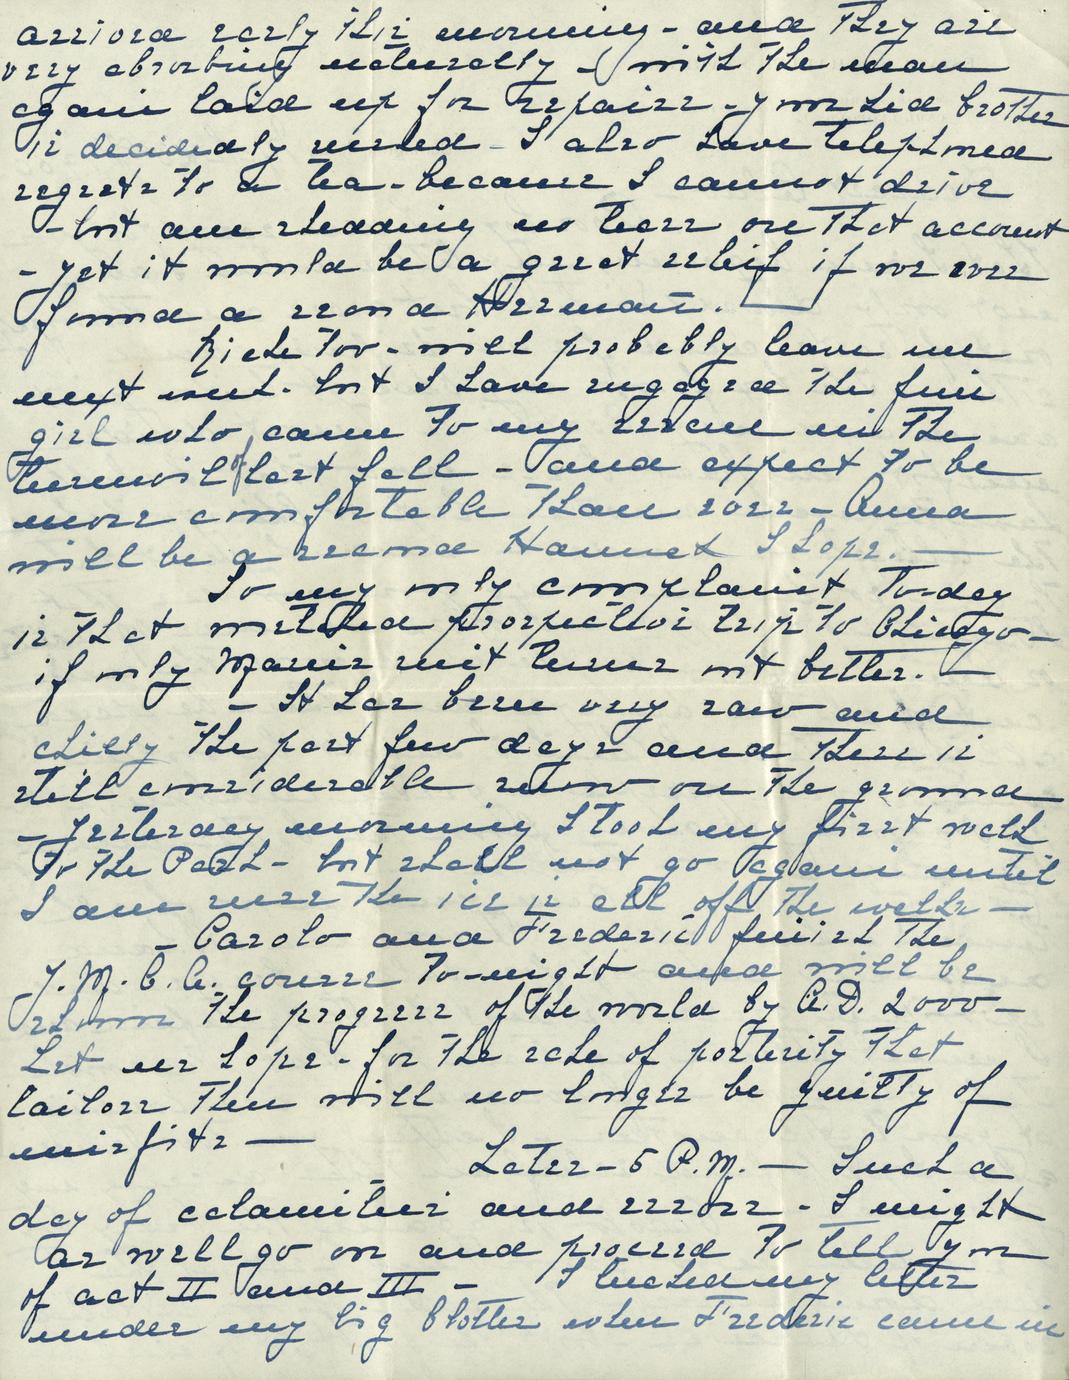 arrived early this morning - and they are
very absorbing naturally - with the man
again laid up for repairs - your kid brother
is decidedly used - I also have telephoned
regrets to a tea - because I cannot drive
- but am shedding no tears on that account
- yet it would be a great relief if we ever
found a second Herman.
too - will probably leave me
next week - but I have engaged the fine
girl who came to my rescue in the
turmoil of last fall - and expect to be
more comfortable than ever - Anna
will be a second Hannah I hope. -
So my only complaint to-day
is that wretched prospective trip to Chicago -
if only Marie's suit turns out better. -
- It has been very raw and
chilly the past few days and there is
still considerable snow on the ground
- Yesterday morning I took my first walk
to the Park - but shall not go again until
I am sure the ice is all off the walks -
- Carolo and Frederic finish the
Y.M.C.A. course to-night and will be
shown the progress of the world by A.D. 2000 -
Let us hope - for the sake of posterity that
tailors then will no longer be guilty of
misfits -
Later - 5 P.M. - Such a
day of calamities and errors - I might
as well go on and proceed to tell you
of act II and III - I tucked my letter
under my big blotter when Frederic came in